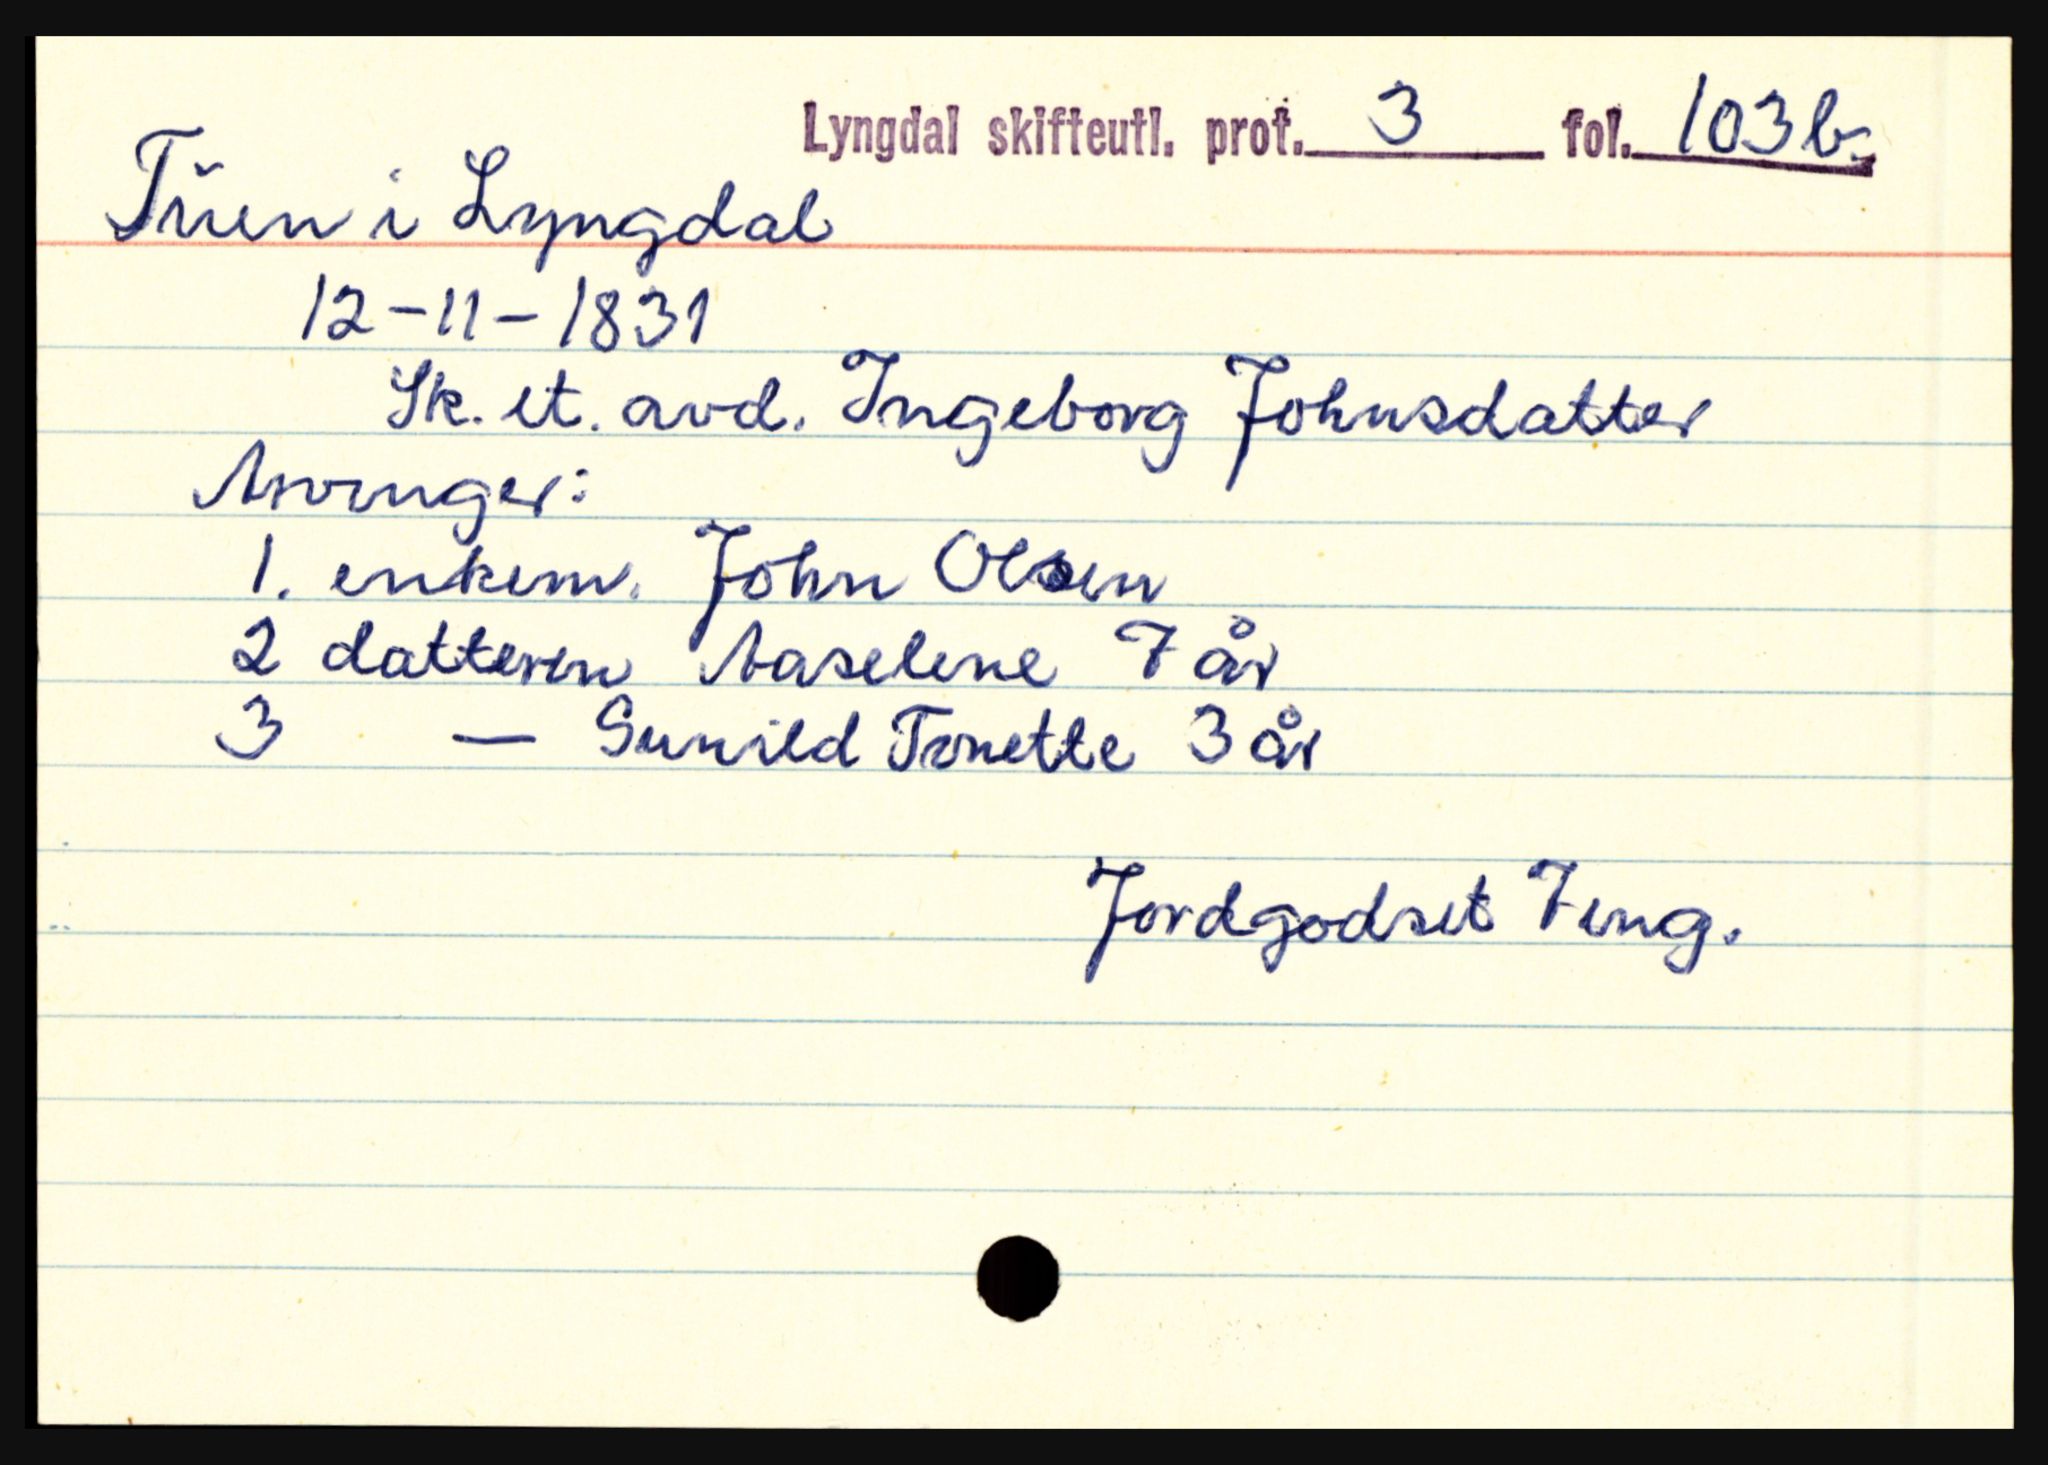 Lyngdal skifteutl. prot. 3 fol. 103b.
Tŭen i Lyngdal
12-11-1831
Sk. et. avd. Ingeborg Johnsdatter
Arvinger:
1. enkem. John Olsen
2 datteren Aaselene 7 år
3 — Gunild Tonette 3 år
Jordgodset 7 eng.